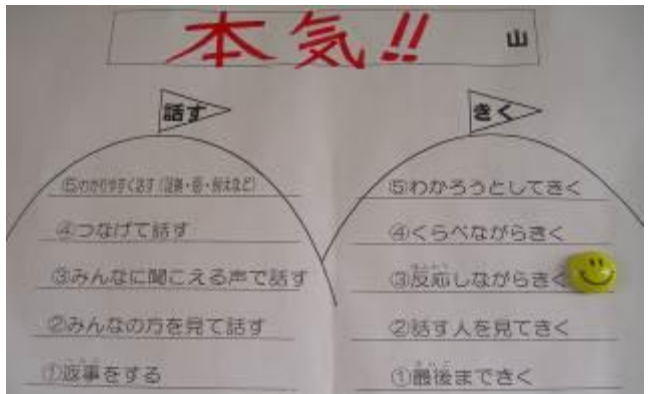 本気!! 山
話す
⑤わかりやすく話す(
④つなげて話す
③みんなに聞こえる声で話す
②みんなの方を見て話す
①返事をする
きく
⑤わかろうとしてきく
④くらべながらきく
③反応しながらきく
②話す人を見てきく
①最後まできく